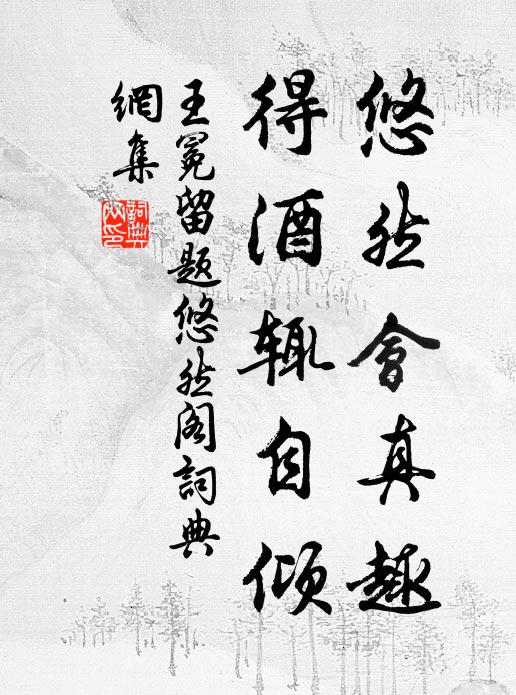 悠然會真趣
得酒輒自傾
王冕留題悠然阁詞典
網集
詞典网印